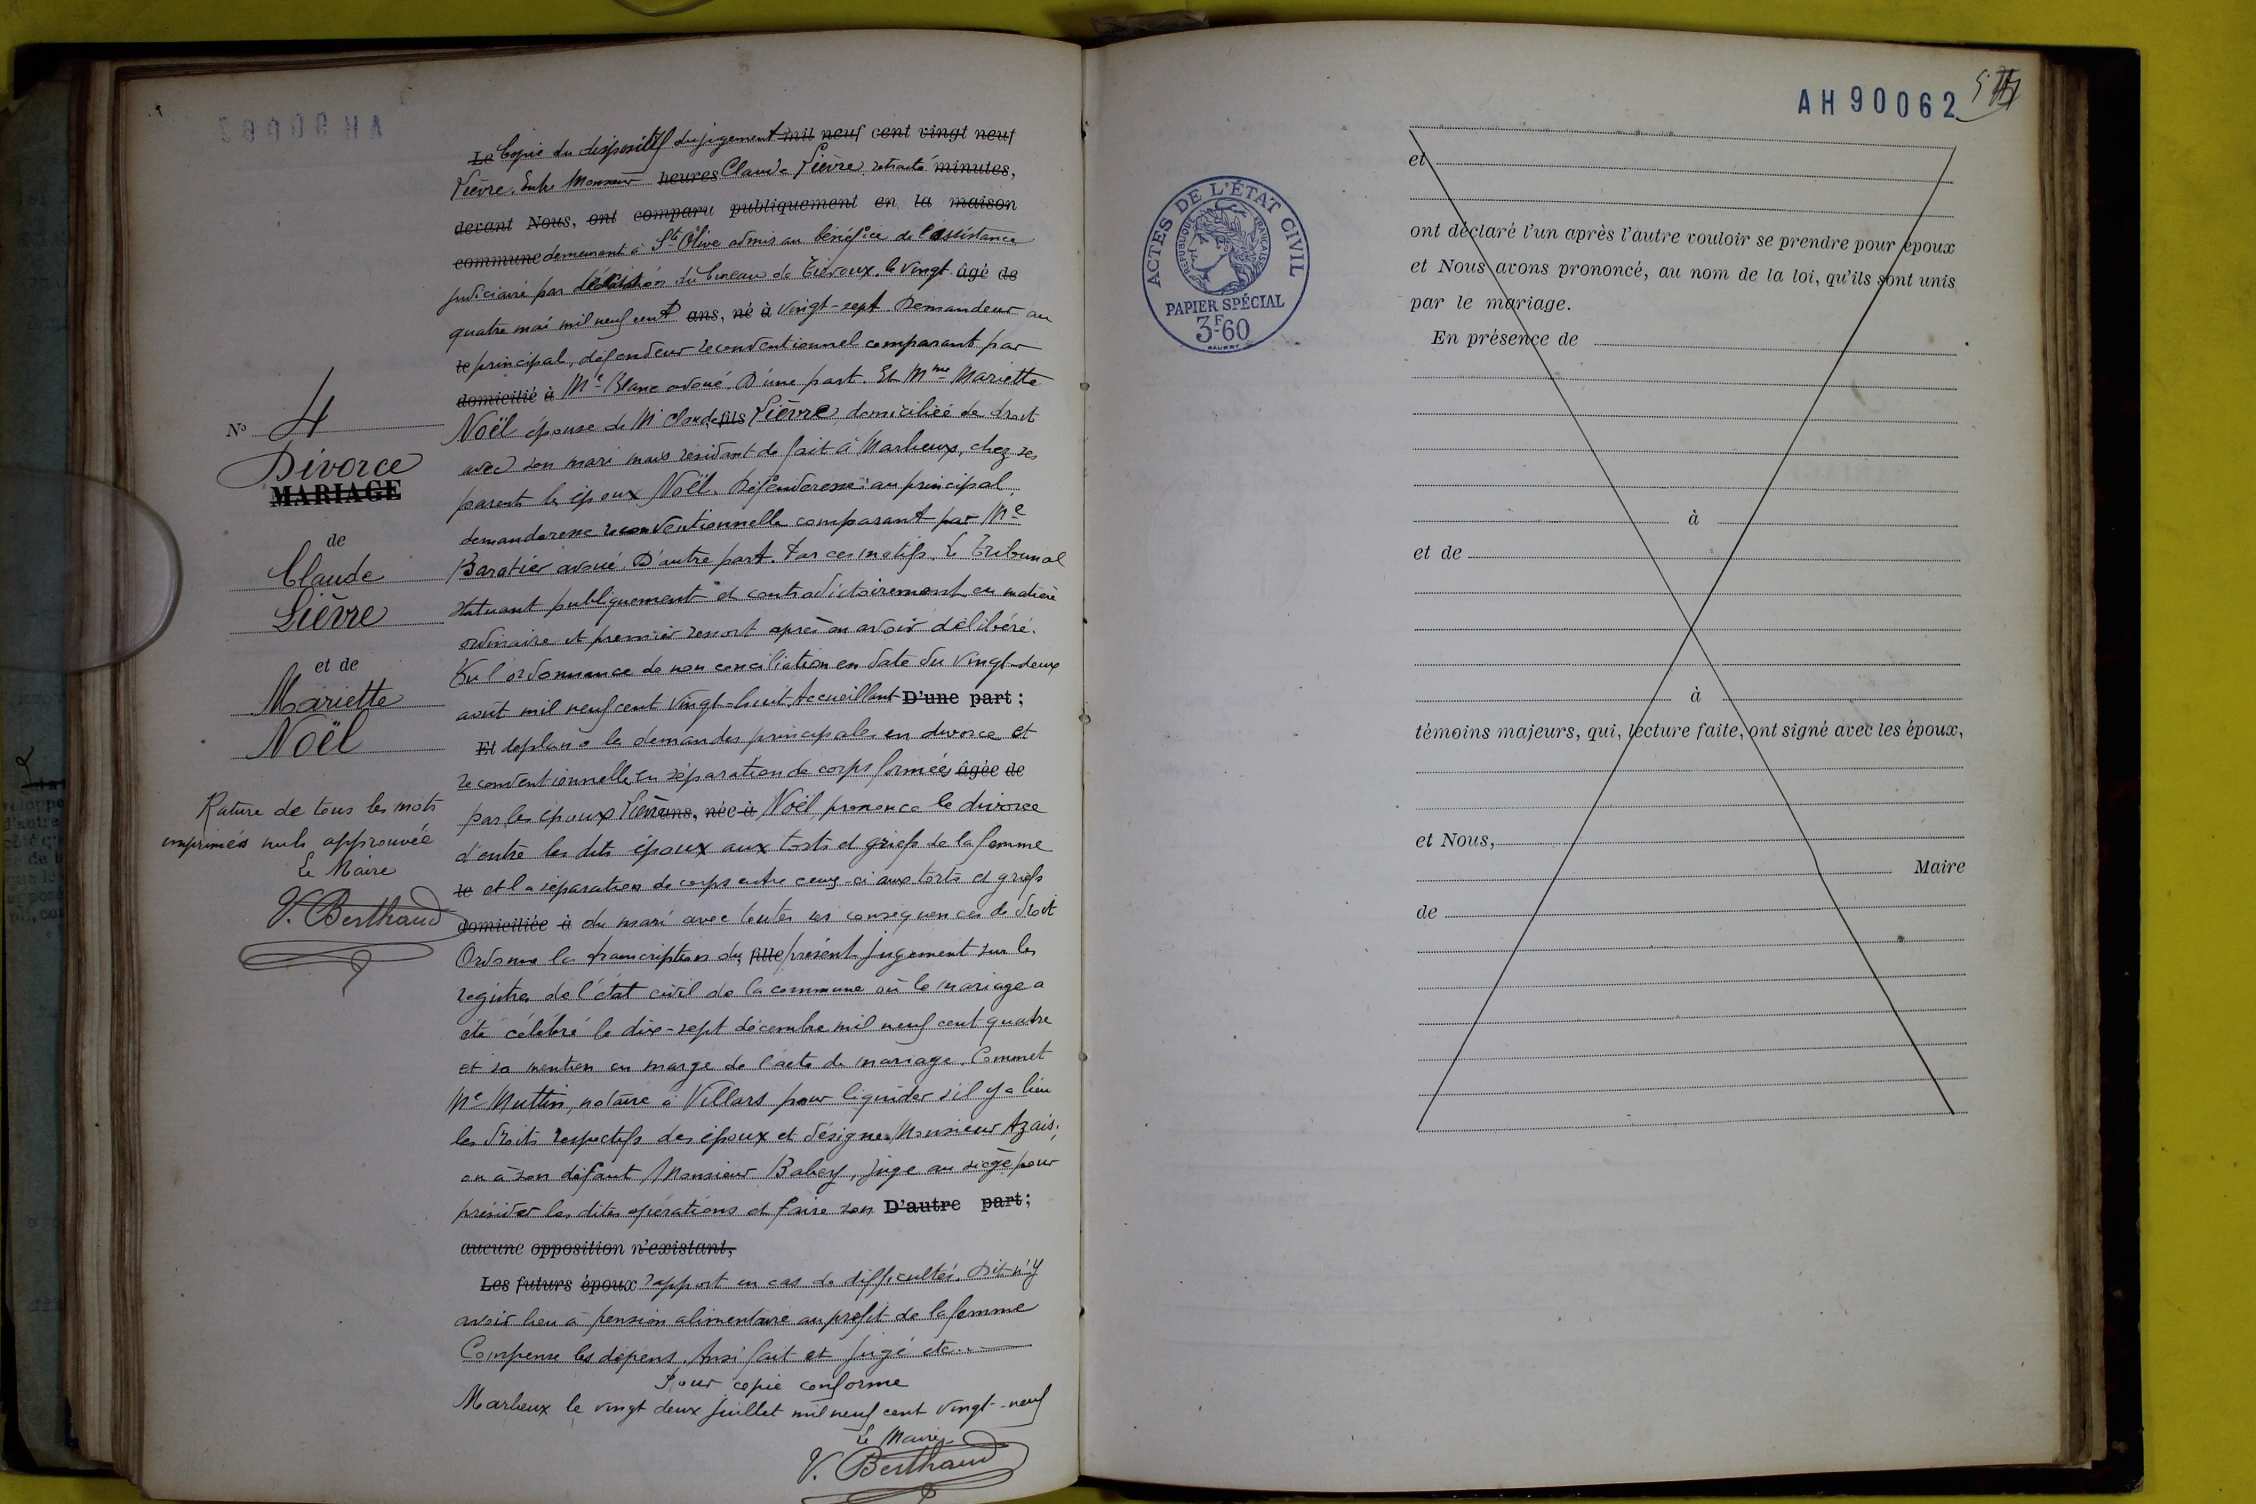 N° 4
Divorce
MARIAGE
de
Claude
Lièvre
et de
Mariette
Noël
Rature de tous les mots
imprimés nuls approuvée
Le Maire
V. Berthaud
Le Copie du dispositif du jugement mil neuf cent vingt neuf
Lièvre. Entre Monsieur heures Claude Lièvre, retraité minutes,
devant Nous, ont comparu publiquement en la maison
commune demeurant à Ste Olive admis au bénéfice de l'assistance
judiciaire par décision du bureau de Trévoux. le vingt âgé de
quatre mai mil neuf cent ans, né à vingt-sept Demandeur au
le principal, défendeur reconventionnel comparant par
domicilié à Me Blanc avoué. D'une part. Et Mme Mariette
Noël épouse de Mr Claude fils Lièvre, domiciliée de droit
avec son mari mais résidant de fait à Marlieux, chez ses
parents les époux Noël. Défenderesse au principal,
demanderesse reconventionnelle comparant par Me
Baratier avoué D'autre part. Par ces motifs. Le Tribunal
statuant publiquement et contradictoirement en matière
ordinaire et premier ressort après en avoir délibéré.
Vu l'ordonnance de non conciliation en date du vingt-deux
août mil neuf cent vingt-huit Accueillant D'une part;
Et de plano les demandes principales en divorce et
reconventionnelle en séparation de corps formées âgée de
par les époux Lièvre ans, née à Noël, prononce le divorce
d'entre les dits époux aux torts et griefs de la femme
le et la séparation de corps entre ceux-ci aux torts et griefs
domiciliée à du mari avec toutes ses conséquences de droit
Ordonne la transcription du fille présent jugement sur les
registres de l'état civil de la commune où le mariage a
été célébré le dix-sept décembre mil neuf cent quatre
et sa mention en marge de l'acte de mariage. Commet
Me Muttin, notaire à Villars pour liquider s'il y a lieu
les droits respectifs des époux et désigne Monsieur Azais,
ou à son défaut Monsieur Babey, juge au siège pour
présider les dites opérations et faire son D'autre part;
aucune opposition n'existant,
Les futurs époux rapport en cas de difficultés. Dit n'y
avoir lieu à pension alimentaire au profit de la femme
Compense les dépens. Ainsi fait et jugé etc...
Pour copie conforme
Marlieux le vingt deux juillet mil neuf cent vingt-neuf
Le Maire
V. Berthaud
AH90062
ACTES DE L'ÉTAT CIVIL
RÉPUBLIQUE FRANÇAISE
PAPIER SPÉCIAL
3F60
et
ont déclaré l'un après l'autre vouloir se prendre pour époux
et Nous avons prononcé, au nom de la loi, qu'ils sont unis
par le mariage.
En présence de
à
et de
à
témoins majeurs, qui, lecture faite, ont signé avec les époux,
et Nous,
Maire
de